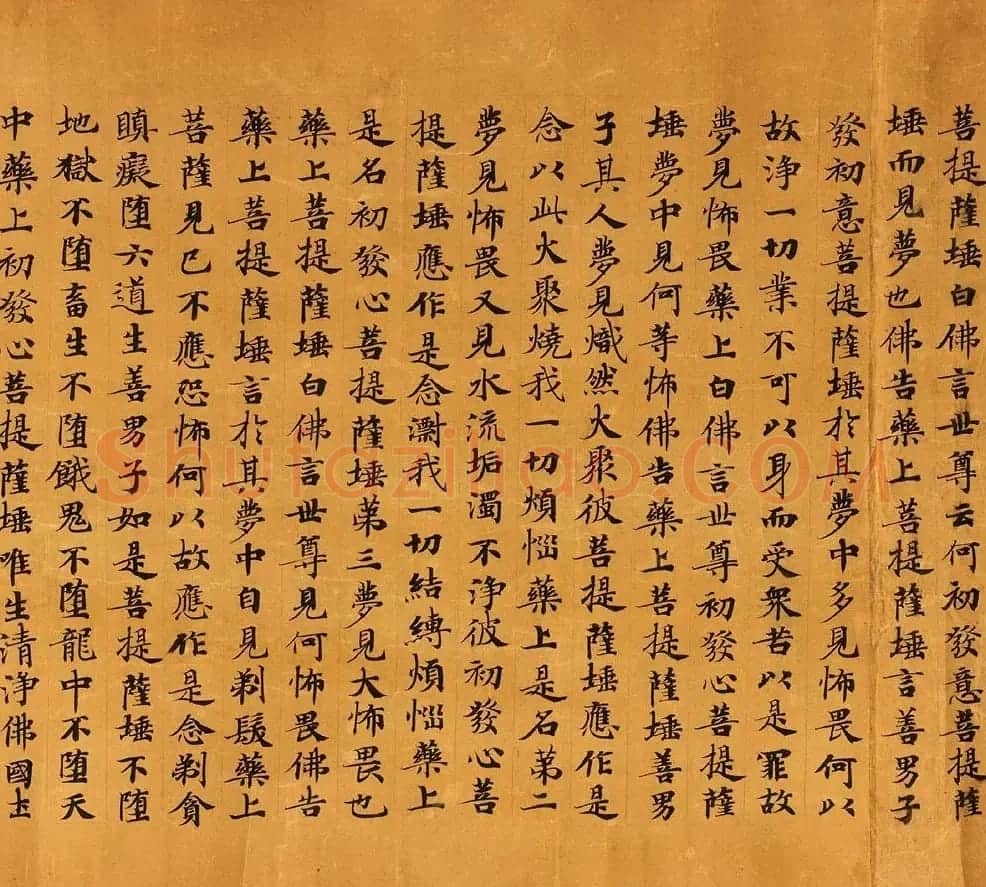 菩提薩埵白佛言世尊云何初發意菩提薩
埵而見夢也佛告藥上菩提薩埵言善男子
發初意菩提薩埵於其夢中多見怖畏何以
故浄一切業不可以身而受衆苦以是罪故
夢見怖畏藥上白佛言世尊初發心菩提薩
埵夢中見何等怖佛告藥上菩提薩埵善男
子其人夢見熾然大聚彼菩提薩埵應作是
念以此大聚燒我一切煩惱藥上是名第二
夢見怖畏又見水流垢濁不浄彼初發心菩
提薩埵應作是念漂我一切結縛煩惱藥上
是名初發心菩提薩埵第三夢見大怖畏也
藥上菩提薩埵白佛言世尊見何怖畏佛告
藥上菩提薩埵言於其夢中自見剃髮藥上
菩薩見已不應恐怖何以故應作是念剃貪
瞋癡墮六道生善男子如是菩提薩埵不墮
地獄不墮畜生不墮餓鬼不墮龍中不墮天
中藥上初發心菩提薩埵唯生清浄佛國土
Shufaziliao.COM